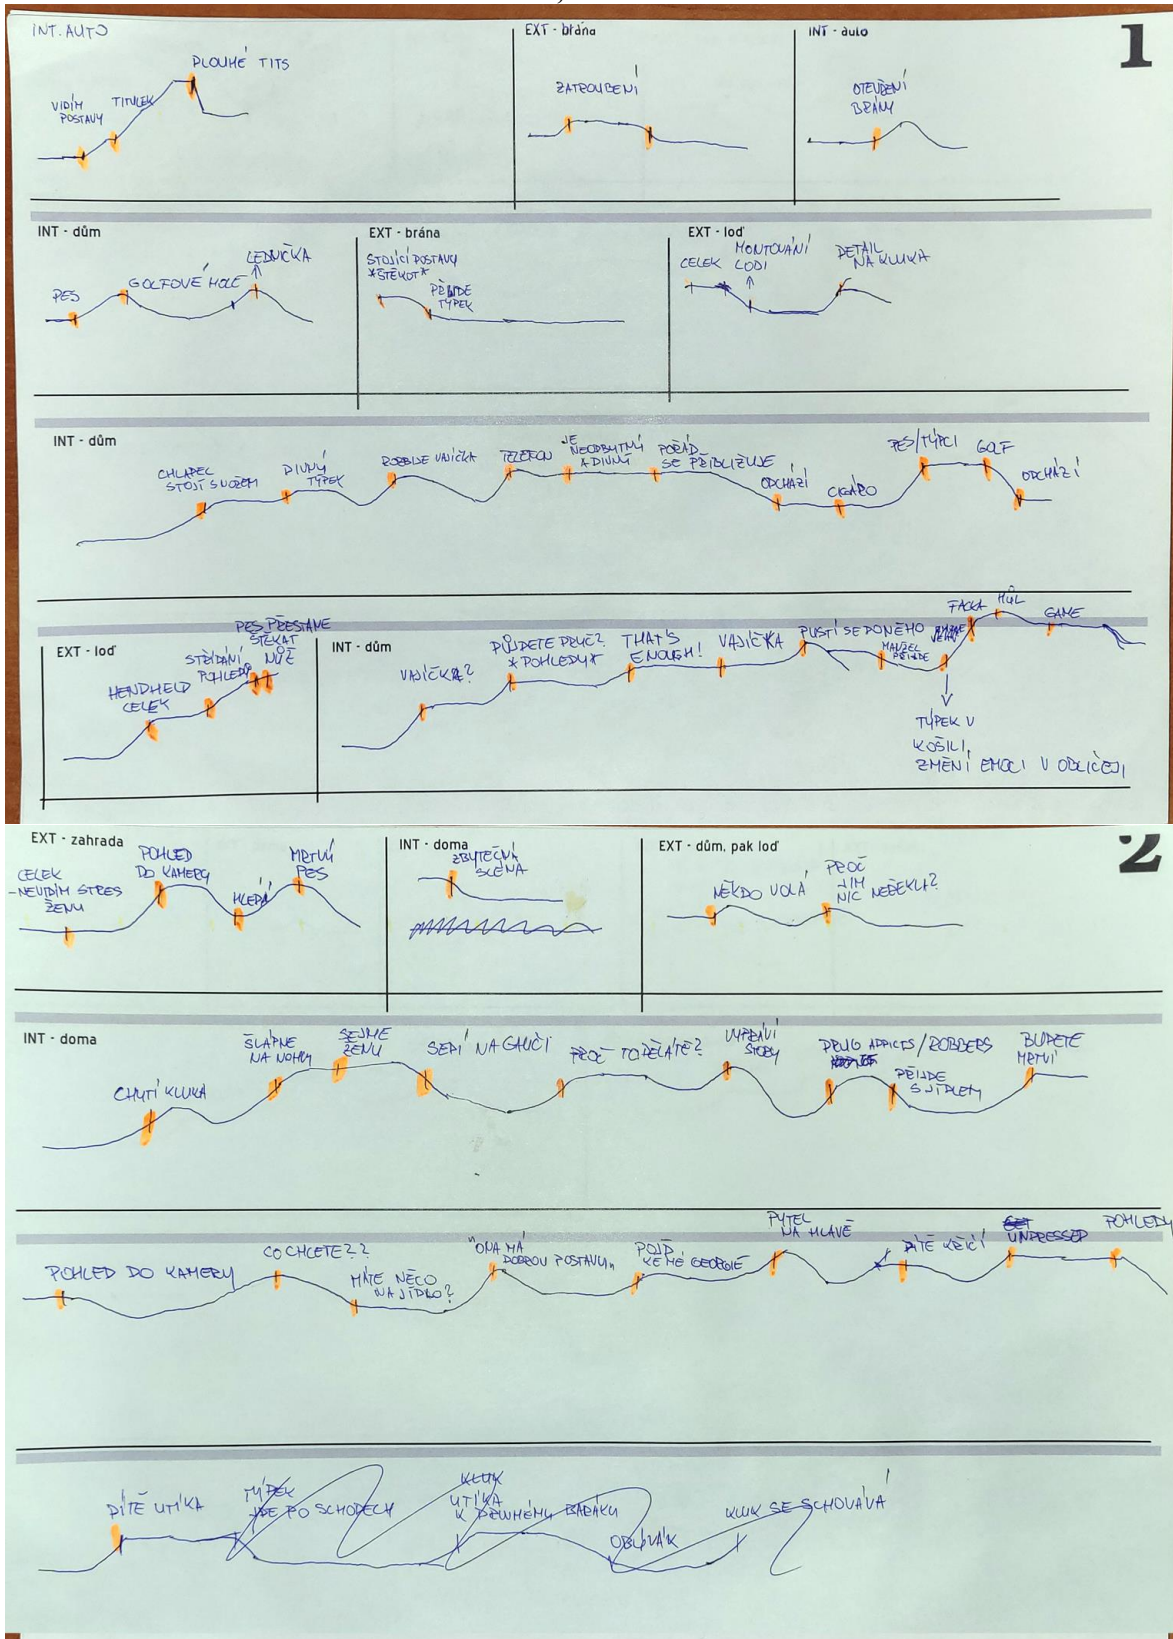 INT. AUTO
VIDÍM
POSTAVY
TITULEK
DLOUHÉ TITS
EXT - brána
ZATROUBENÍ
INT - auto
OTEVŘENÍ
BRÁNY
1
INT - dům
PES
GOLFOVÉ HOLE
LEDNIČKA
EXT - brána
STOJÍCÍ POSTAVY
*ŠTĚKOT*
PŘIJDE
TÝPEK
EXT - loď
CELEK
MONTOVÁNÍ
LODI
DETAIL
NA KLUKA
INT - dům
CHLAPEC
STOJÍ S NOŽEM
DIVNÝ
TÝPEK
ROZBIJE VAJÍČKA
TELEFON
JE
NEODBYTNÝ
A DIVNÝ
POŘÁD
SE PŘIBLIŽUJE
ODCHÁZÍ
CIGÁRO
PES/TÝPCI
GOLF
ODCHÁZÍ
EXT - loď
HENDHELD
CELEK
STŘÍDÁNÍ
POHLEDŮ
PES PŘESTANE
ŠTĚKAT
NŮŽ
INT - dům
VAJÍČKA?
PŮJDETE PRYČ?
*POHLEDY*
THAT'S
ENOUGH!
VAJÍČKA
PUSTÍ SE DO NĚHO
MANŽEL
PŘIJDE
FACKA
HŮL
GAME
TÝPEK V
KOŠILI
ZMĚNÍ EMOCI V OBLIČEJI
EXT - zahrada
CELEK
-NEVIDÍM STRES
ŽENU
POHLED
DO KAMERY
HLEDÁ
MRTVÝ
PES
INT - doma
ZBYTEČNÁ
SCÉNA
EXT - dům, pak loď
NĚKDO VOLÁ
PROČ
JIM
NIC NEŘEKLA?
2
INT - doma
CHYTÍ KLUKA
ŠLÁPNE
NA NOHU
SEJME
ŽENU
SEDÍ NA GAUČI
PROČ TO DĚLÁTE?
VYPRÁVÍ
STORY
DRUG ADDICTS/ROBBERS
PŘIJDE
S JÍDLEM
BUDETE
MRTVÍ
POHLED DO KAMERY
CO CHCETE??
MÁTE NĚCO
NA JÍDLO?
"ONA MÁ
DOBROU POSTAVU"
POJĎ
KE MĚ GEORGIE
PYTEL
NA HLAVĚ
DÍTĚ KŘIČÍ
GET
UNDRESSED
POHLEDY
DÍTĚ UTÍKÁ
TÝPEK
JDE PO SCHODECH
KLUK
UTÍKÁ
K DRUHÉMU BARÁKU
OBÝVÁK
KLUK SE SCHOVÁVÁ